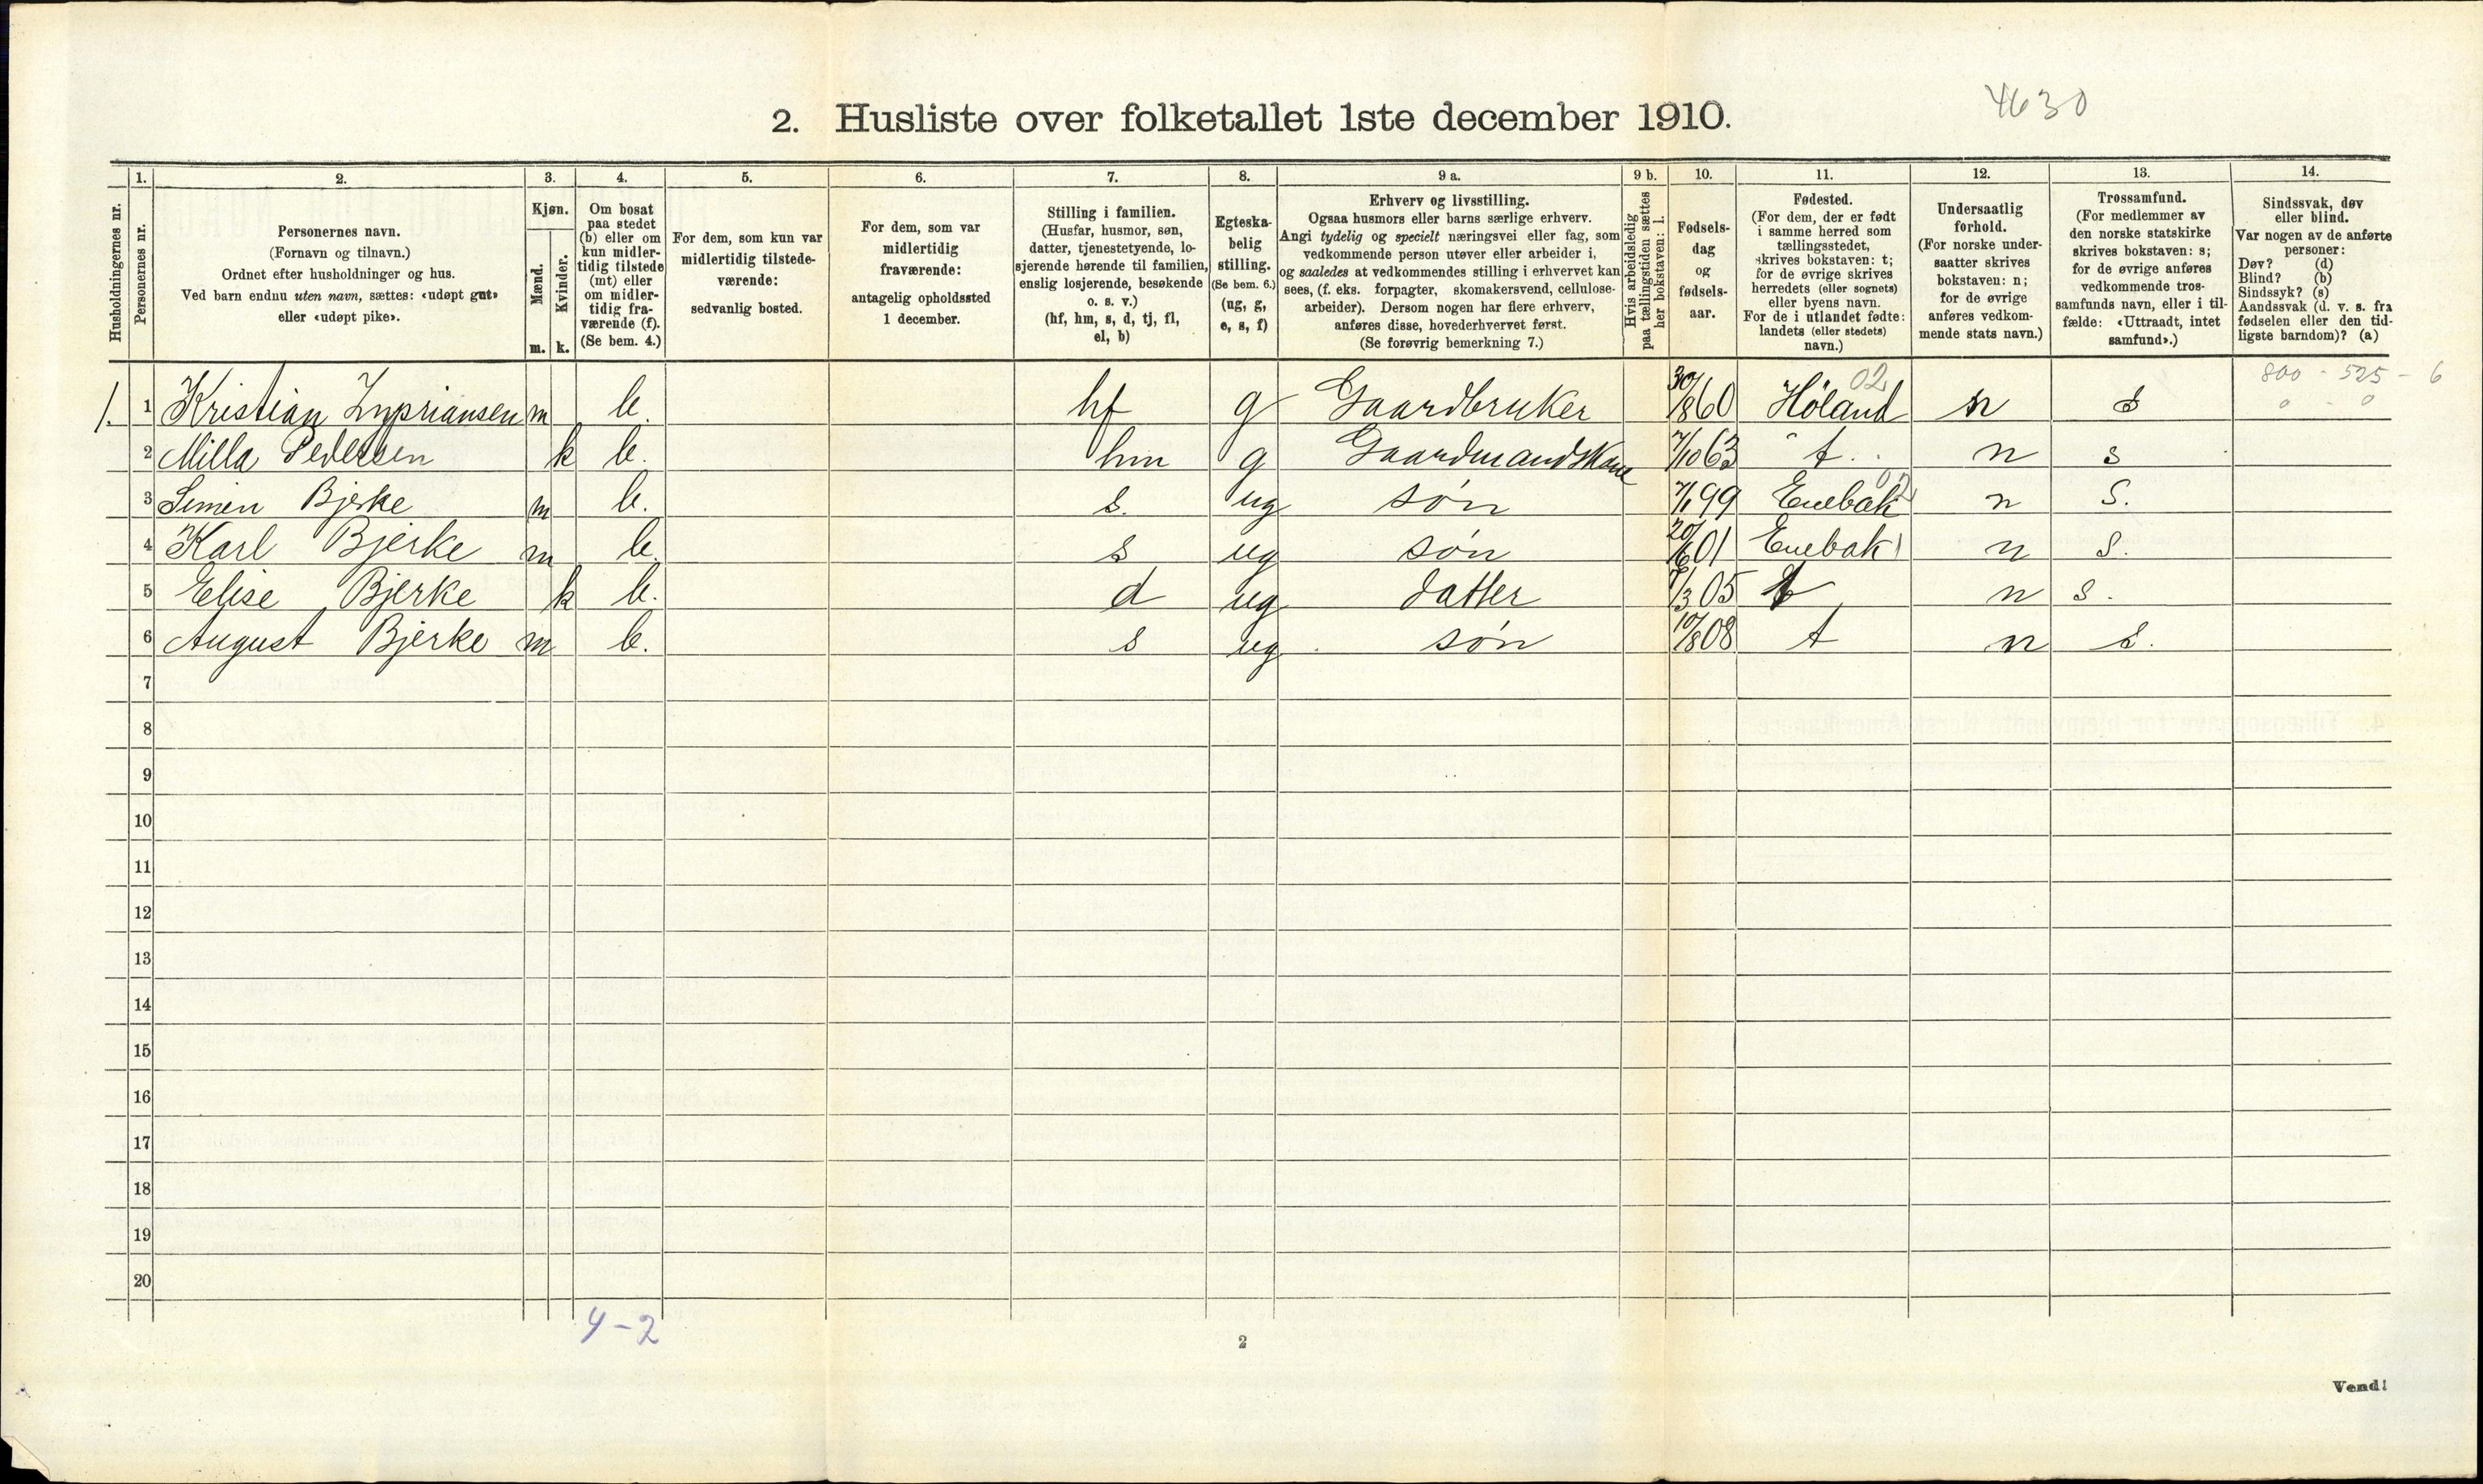 4630
2. Husliste over folketallet 1ste december 1910.
Husholdningernes nr.
1.
Personernes nr.
2.
Personernes navn.
(Fornavn og tilnavn.)
Ordnet efter husholdninger og hus.
Ved barn endnu uten navn, sættes: «udøpt gut»
eller «udøpt pike».
3.
Kjøn.
Mænd.
Kvinder.
m. k.
4.
Om bosat
paa stedet
(b) eller om
kun midler-
tidig tilstede
(mt) eller
om midler-
tidig fra-
værende (f).
(Se bem. 4.)
5.
For dem, som kun var
midlertidig tilstede-
værende:
sedvanlig bosted.
6.
For dem, som var
midlertidig
fraværende:
antagelig opholdssted
1 december.
7.
Stilling i familien.
(Husfar, husmor, søn,
datter, tjenestetyende, lo-
sjerende hørende til familien,
enslig losjerende, besøkende
o. s. v.)
(hf, hm, s, d, tj, fl,
el, b)
8.
Egteska-
belig
stilling.
(Se bem. 6.)
(ug, g,
e, s, f)
9 a.
Erhverv og livsstilling.
Ogsaa husmors eller barns særlige erhverv.
Angi tydelig og specielt næringsvei eller fag, som
vedkommende person utøver eller arbeider i,
og saaledes at vedkommendes stilling i erhvervet kan
sees, (f. eks. forpagter, skomakersvend, cellulose-
arbeider). Dersom nogen har flere erhverv,
anføres disse, hovederhvervet først.
(Se forøvrig bemerkning 7.)
9 b.
Hvis arbeidsledig
paa tællingstiden sættes
her bokstaven: l.
10.
Fødsels-
dag
og
fødsels-
aar.
11.
Fødested.
(For dem, der er født
i samme herred som
tællingsstedet,
skrives bokstaven: t;
for de øvrige skrives
herredets (eller sognets)
eller byens navn.
For de i utlandet fødte:
landets (eller stedets)
navn.)
12.
Undersaatlig
forhold.
(For norske under-
saatter skrives
bokstaven: n;
for de øvrige
anføres vedkom-
mende stats navn.)
13.
Trossamfund.
(For medlemmer av
den norske statskirke
skrives bokstaven: s;
for de øvrige anføres
vedkommende tros-
samfunds navn, eller i til-
fælde: «Uttraadt, intet
samfund».)
14.
Sindssvak, døv
eller blind.
Var nogen av de anførte
personer:
Døv? (d)
Blind? (b)
Sindssyk? (s)
Aandssvak (d. v. s. fra
fødselen eller den tid-
ligste barndom)? (a)
02 800 - 525 - 6
1. 1 Kristian Zypriansen m b. hf g Gaardbruker 30/8 60 Høland n s 0 - 0
2 Milla Pedersen k b. hm g Gaardmandskone 7/10 63 t. n s
02
3 Simen Bjerke m b. s. ug søn 7/1 99 Enebak n s.
4 Karl Bjerke m b. s ug søn 20/6 01 Enebak n s.
5 Elise Bjerke k b. d ug datter 7/3 05 t n s.
6 August Bjerke m b. s ug søn 10/8 08 t n s.
7
8
9
10
11
12
13
14
15
16
17
18
19
20
4-2
2
Vend!